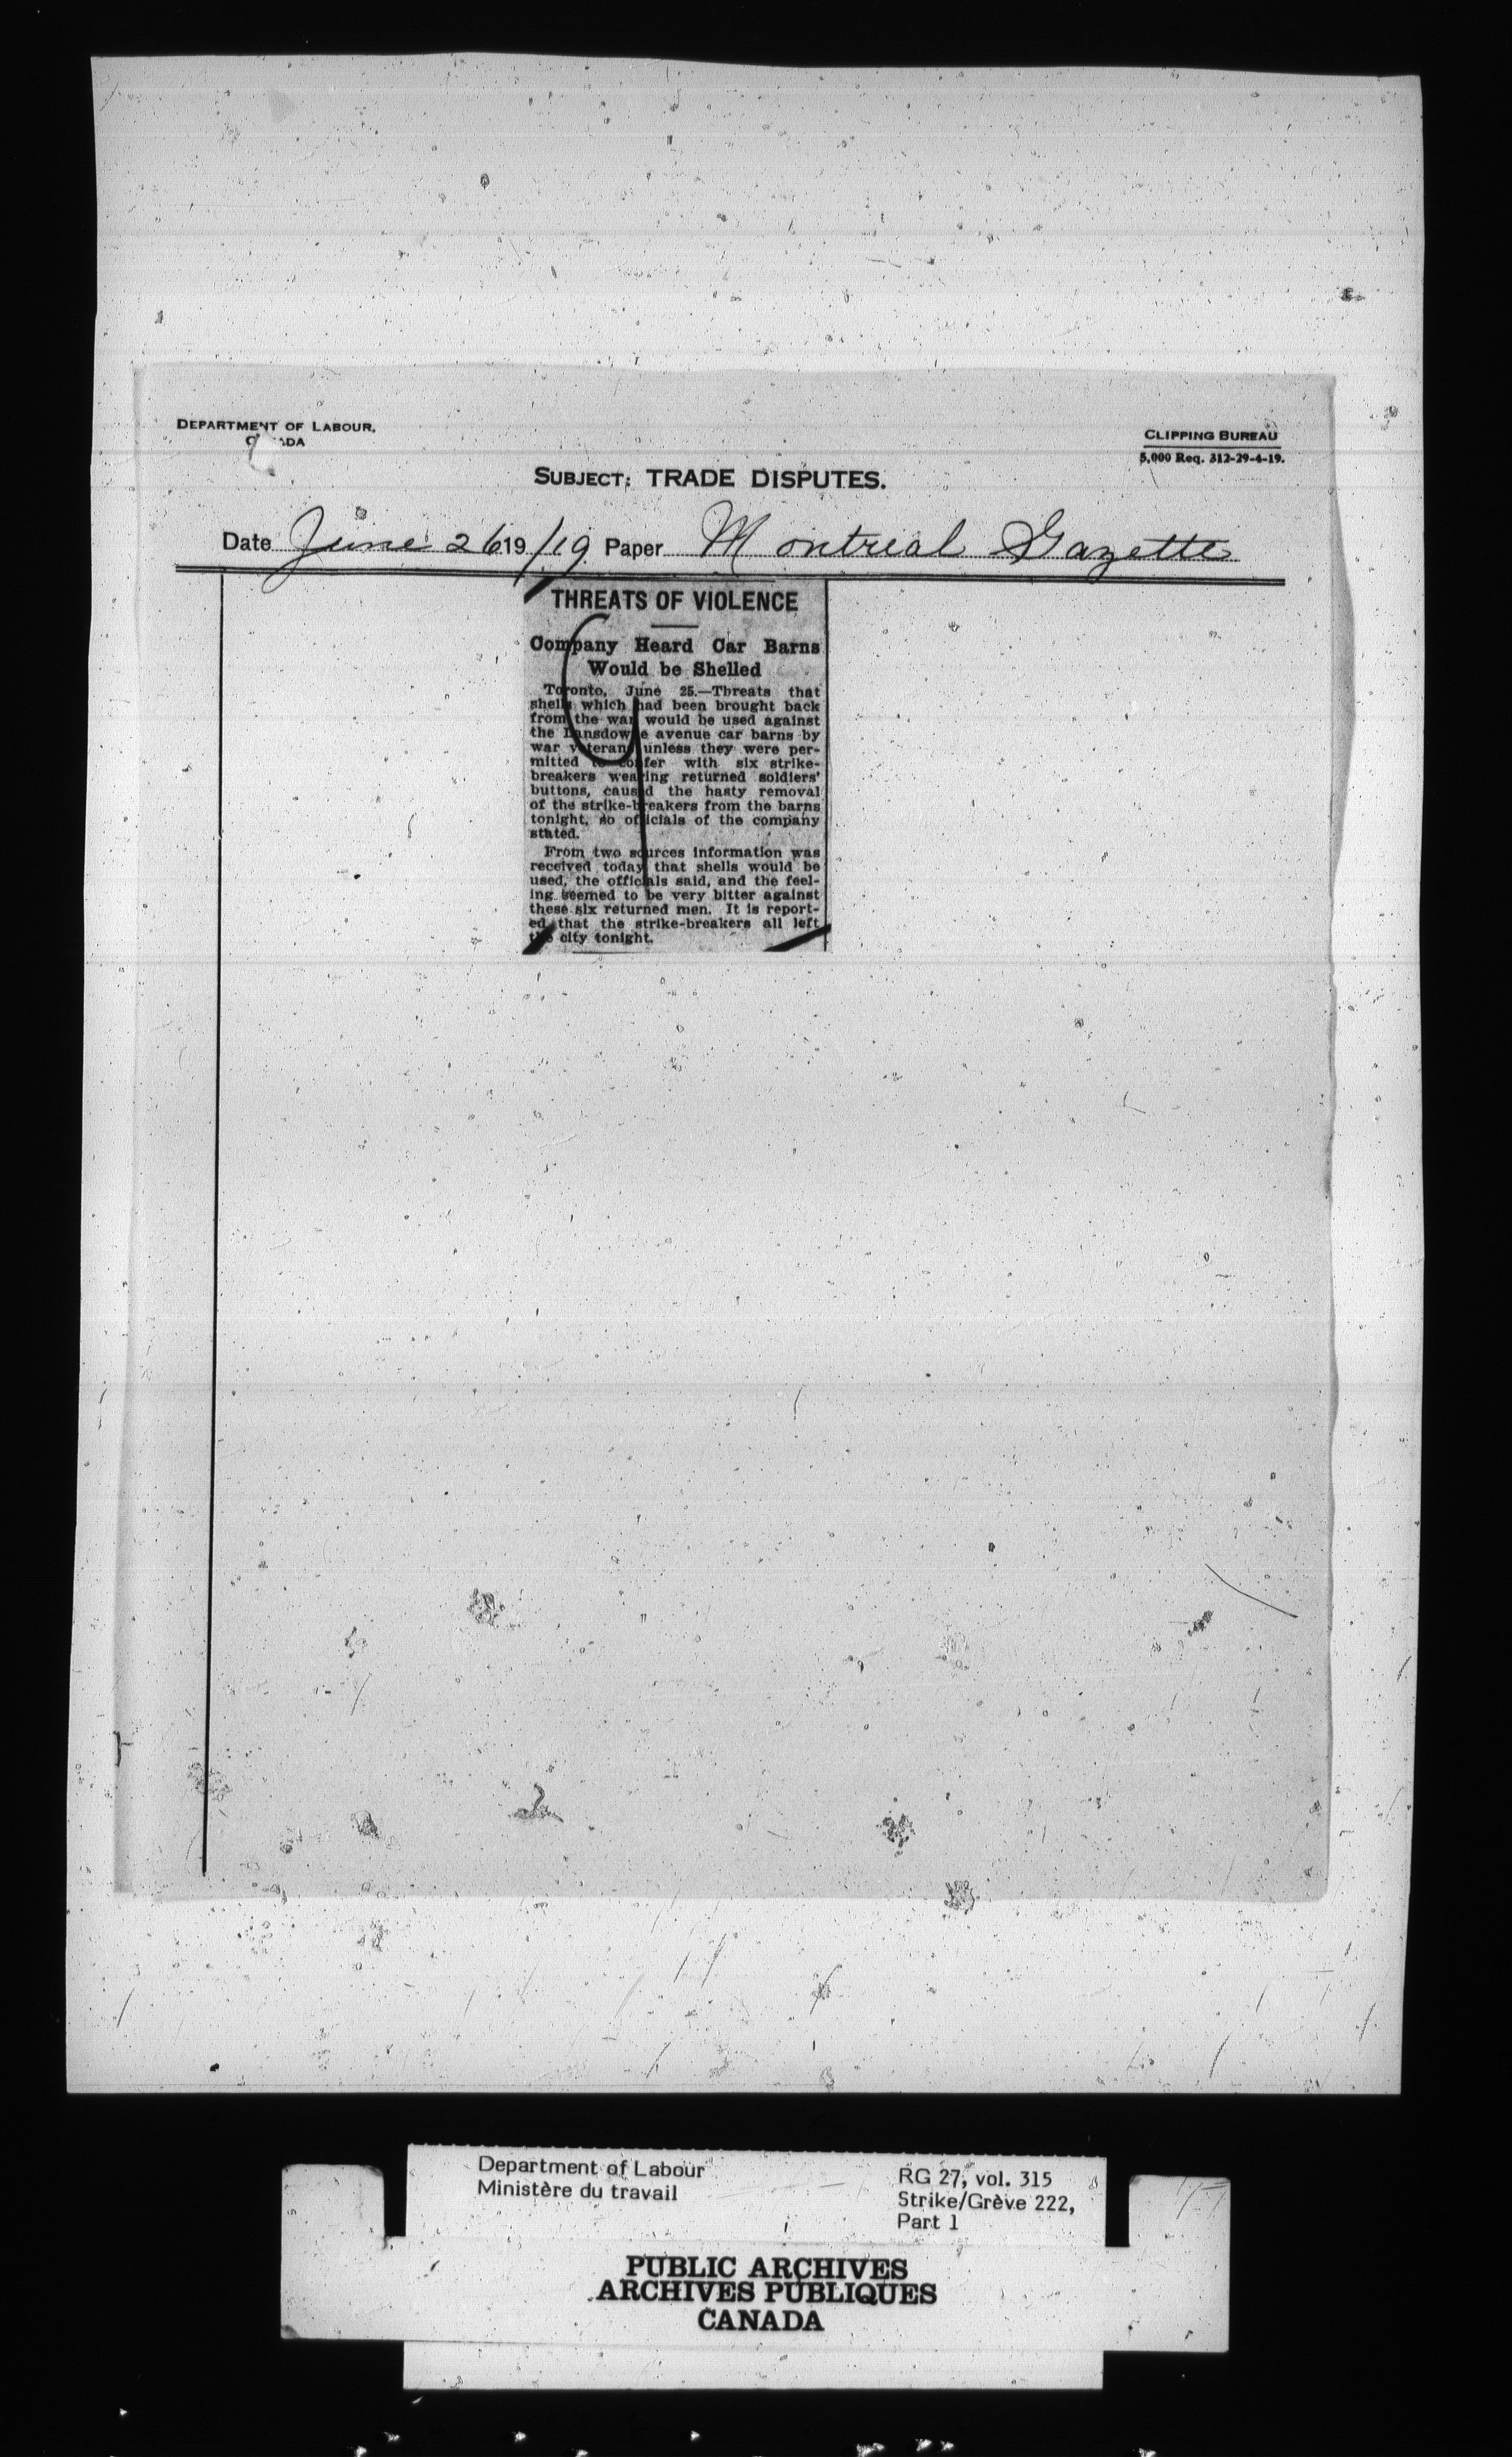 DEPARTMENT OF LABOUR,
CANADA
CLIPPING BUREAU
5,000 Req. 312-29-4-19.
SUBJECT: TRADE DISPUTES.
Date June 26 19/19 Paper Montreal Gazette
THREATS OF VIOLENCE
Company Heard Car Barns
Would be Shelled
Toronto, June 25.—Threats that
shells which had been brought back
from the war would be used against
the Lansdowne avenue car barns by
war veterans unless they were per-
mitted to confer with six strike-
breakers wearing returned soldiers'
buttons, caused the hasty removal
of the strike-breakers from the barns
tonight, so officials of the company
stated.
From two sources information was
received today that shells would be
used, the officials said, and the feel-
ing seemed to be very bitter against
these six returned men. It is report-
ed that the strike-breakers all left
the city tonight.
Department of Labour
Ministère du travail
RG 27, vol. 315
Strike/Grève 222,
Part 1
PUBLIC ARCHIVES
ARCHIVES PUBLIQUES
CANADA